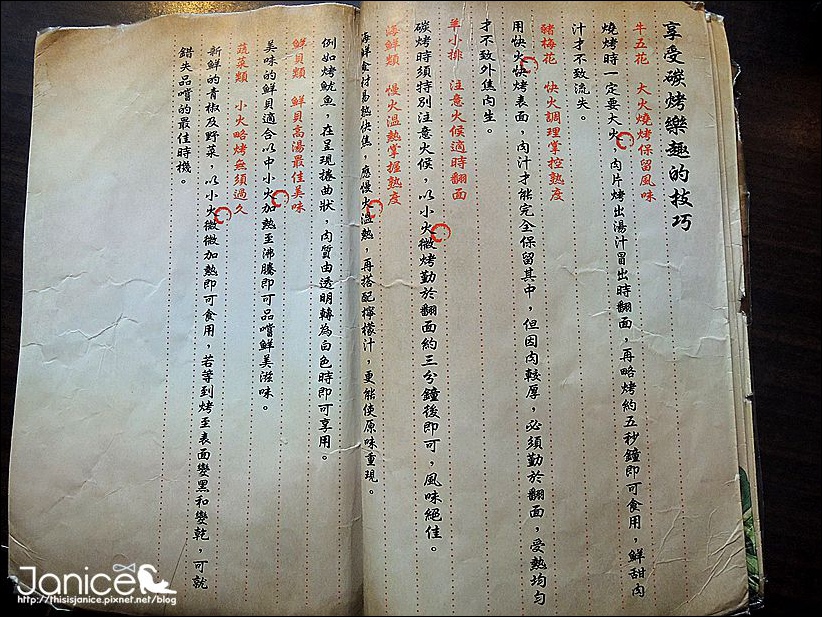 享受碳烤樂趣的技巧
牛五花　大火燒烤保留風味
燒烤時一定要大火，肉片烤出湯汁冒出時翻面，再略烤約五秒鐘即可食用，鮮甜肉
汁才不致流失。
豬梅花　快火調理掌控熟度
用快火快烤表面，肉汁才能完全保留其中，但因肉較厚，必須勤於翻面，受熱均勻
才不致外焦肉生。
羊小排　注意火候適時翻面
碳烤時須特別注意火候，以小火微烤勤於翻面約三分鐘後即可，風味絕佳。
海鮮類　慢火溫熱掌握熟度
海鮮食材易熟快焦，應慢火溫熱，再搭配檸檬汁，更能使原味重現。
例如烤魷魚，在呈現捲曲狀，肉質由透明轉為白色時即可享用。
鮮貝類　鮮貝高湯最佳美味
美味的鮮貝適合以中小火加熱至沸騰即可品嚐鮮美滋味。
蔬菜類　小火略烤無須過久
新鮮的青椒及野菜，以小火微微加熱即可食用，若等到烤至表面變黑和變乾，可就
錯失品嚐的最佳時機。
Janice
http://thisisjanice.pixnet.net/blog